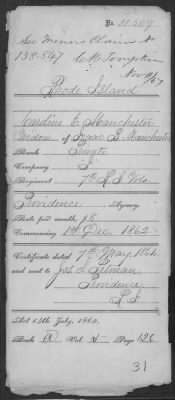 No. 21.559
See Minors Claim No
138.847 C. M. Tompkins
Nov 1/67
Rhode Island
Caroline E. Manchester
Widow of Isaac B. Manchester
Rank Private
Company
Regiment 7th R I Vols
Providence Agency
Rate per month, $8
Commencing 1st Dec. 1862
Certificate dated 7th May, 1864
and sent to Jas. S. Pitman
Providence
R I
Act 14th July, 1862.
Book A Vol. 3 Page 126
31